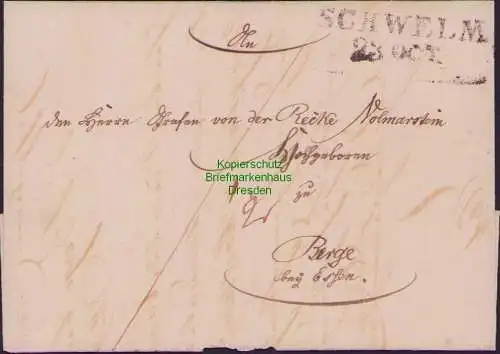 SCHWELM
23 OCT
An
den Herrn Grafen von der Recke Volmarstein
Hochgeboren
Kopierschutz
Briefmarkenhaus
Dresden
zu
Berge
bey Essen.